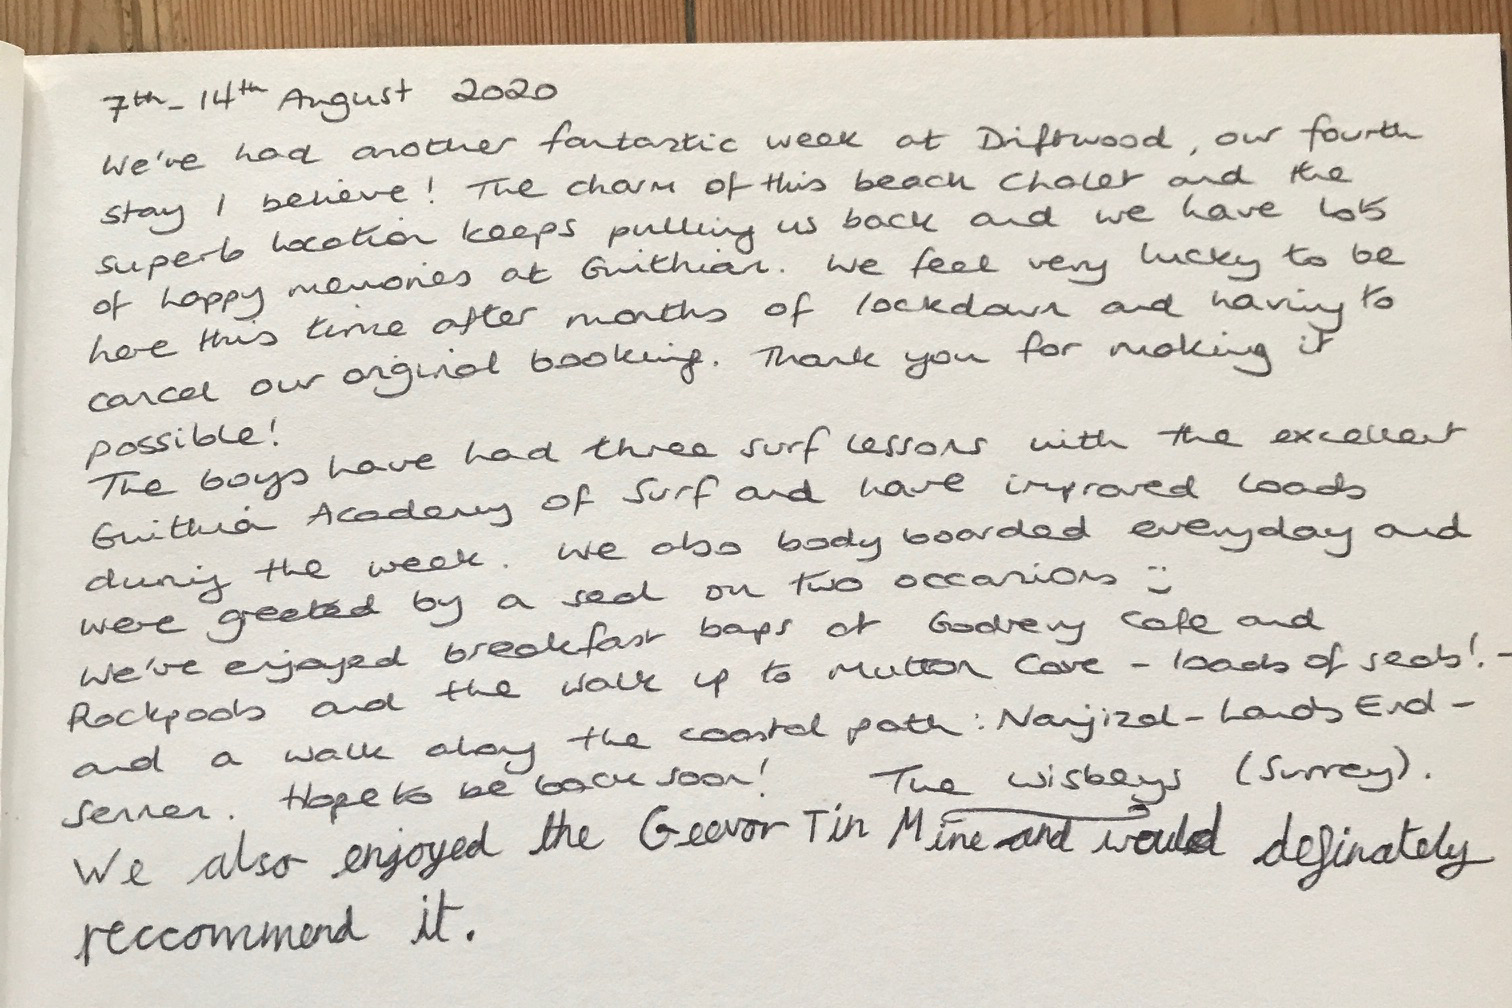 7th - 14th August 2020
We've had another fantastic week at Driftwood, our fourth
stay I believe! The charm of this beach chalet and the
superb location keeps pulling us back and we have lots
of happy memories at Gwithian. We feel very lucky to be
here this time after months of lockdown and having to
cancel our original booking. Thank you for making it
possible!
The boys have had three surf lessons with the excellent
Gwithian Academy of Surf and have improved loads
during the week. We also body boarded everyday and
were greeted by a seal on two occasions :)
We've enjoyed breakfast baps at Godrevy Cafe and
Rockpools and the walk up to Mutton Cove - loads of seals! -
and a walk along the coastal path: Nanjizal - Lands End -
Sennen. Hope to be back soon! The Wisbeys (Surrey).
We also enjoyed the Geevor Tin Mine and would definately
reccommend it.